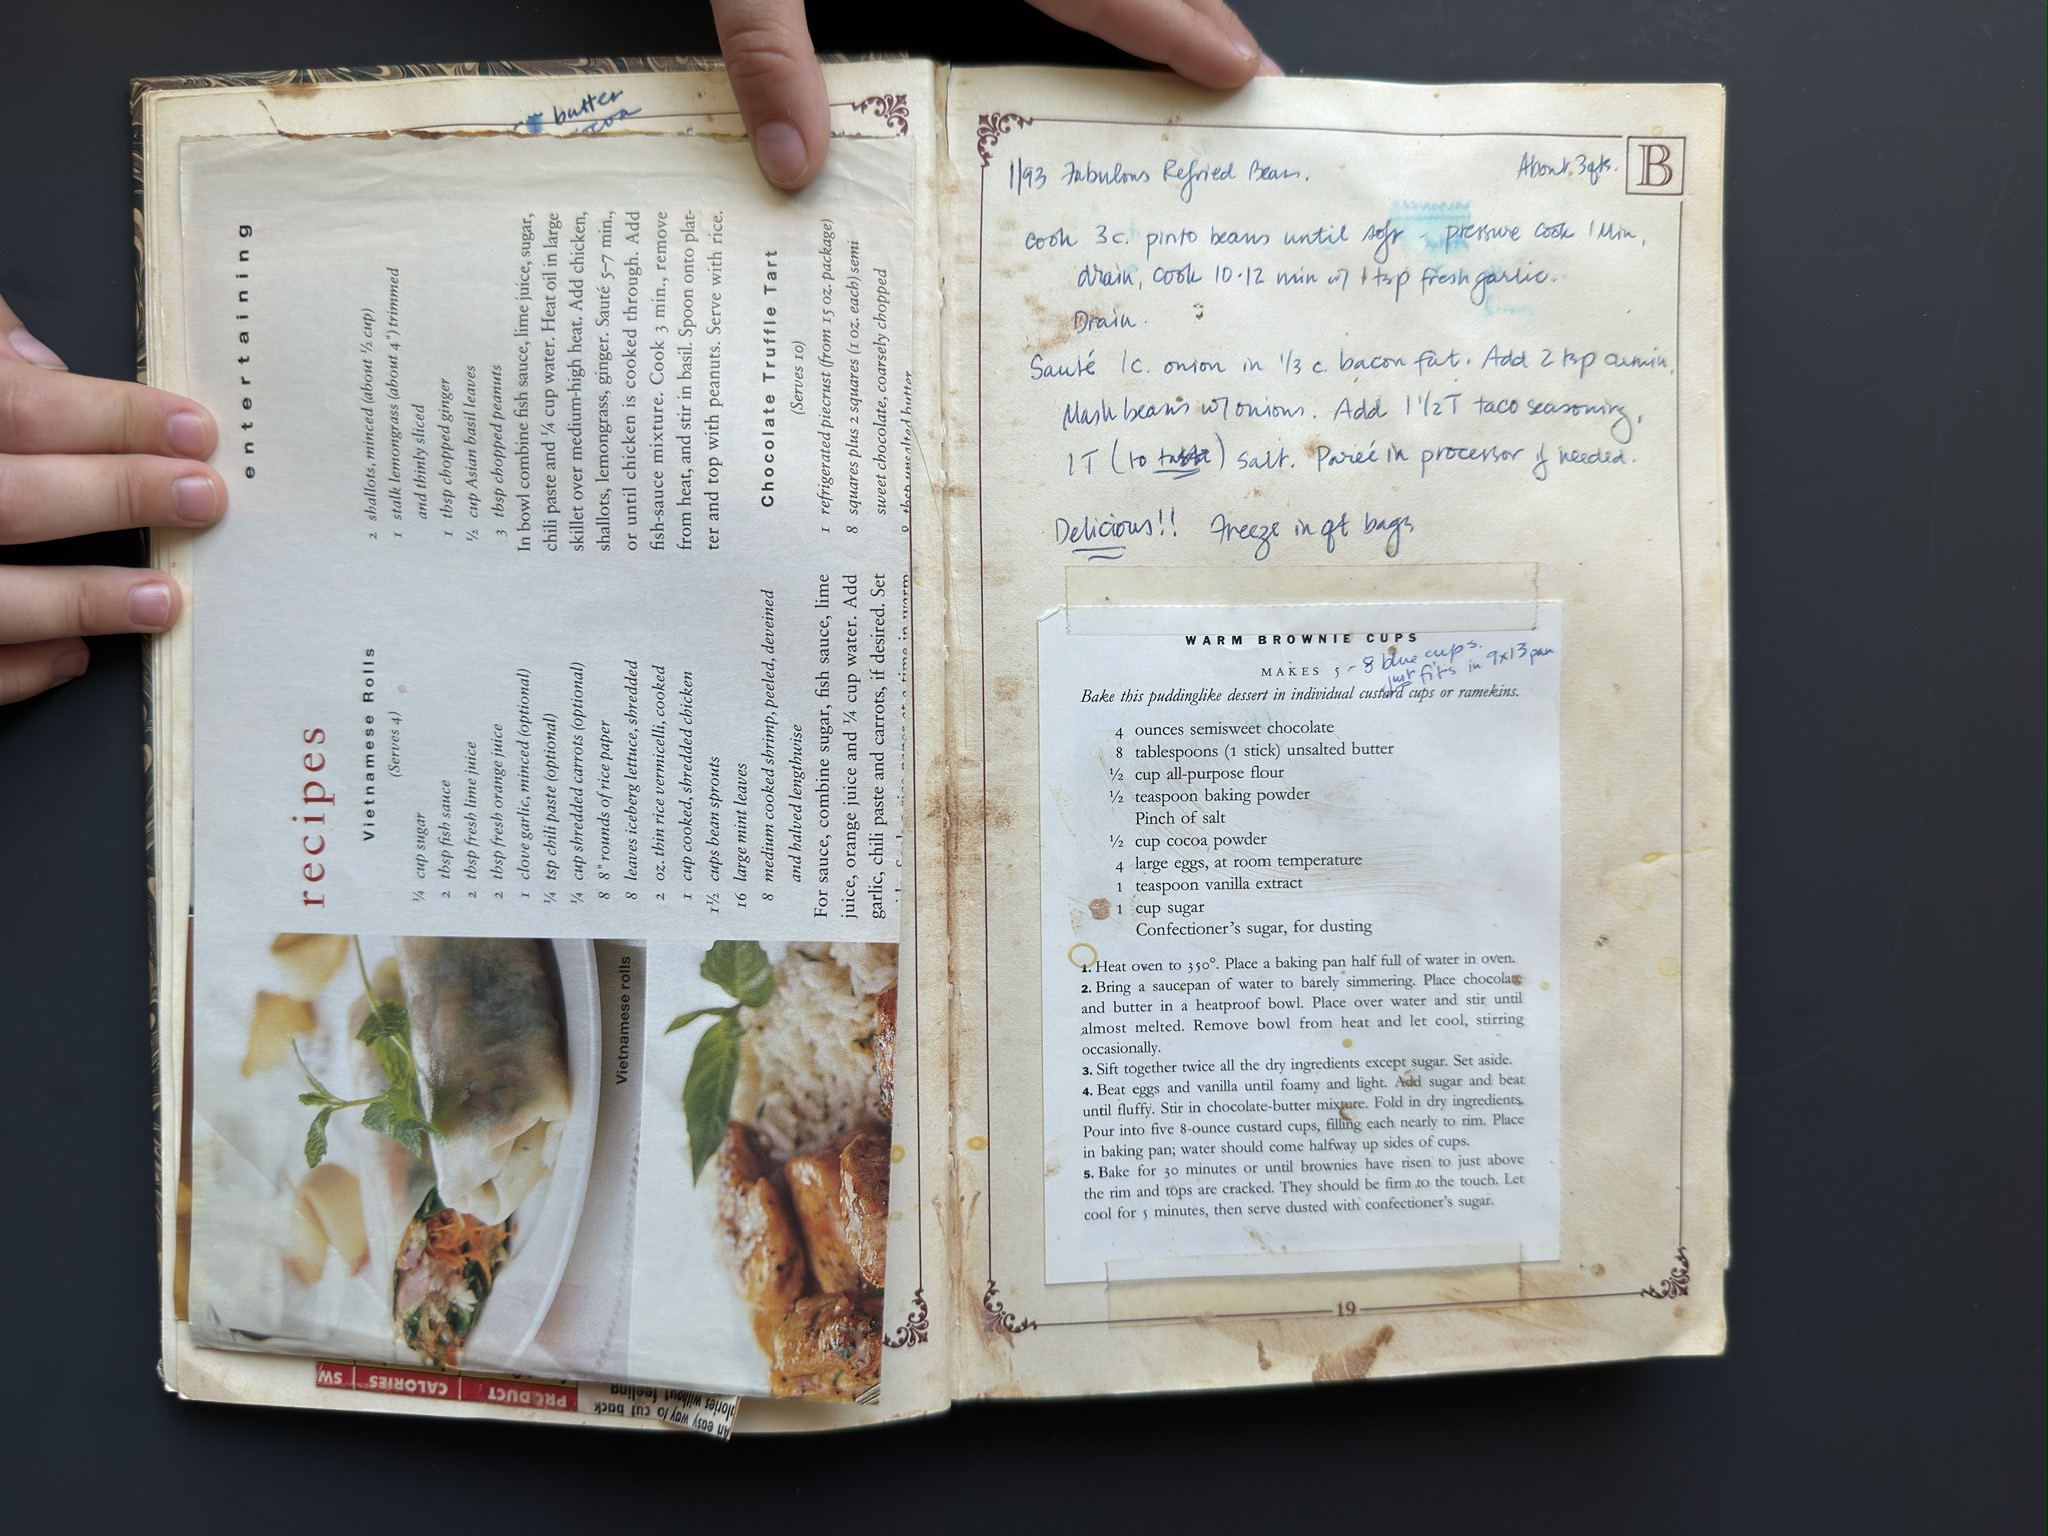 butter
entertaining
recipes
Vietnamese Rolls
(Serves 4)
¼ cup sugar
2 tbsp fish sauce
2 tbsp fresh lime juice
2 tbsp fresh orange juice
1 clove garlic, minced (optional)
¼ tsp chili paste (optional)
¼ cup shredded carrots (optional)
8 8" rounds of rice paper
8 leaves iceberg lettuce, shredded
2 oz. thin rice vermicelli, cooked
1 cup cooked, shredded chicken
1½ cups bean sprouts
16 large mint leaves
8 medium cooked shrimp, peeled, deveined
and halved lengthwise
For sauce, combine sugar, fish sauce, lime
juice, orange juice and ¼ cup water. Add
garlic, chili paste and carrots, if desired. Set
2 shallots, minced (about ½ cup)
1 stalk lemongrass (about 4") trimmed
and thinly sliced
1 tbsp chopped ginger
½ cup Asian basil leaves
3 tbsp chopped peanuts
In bowl combine fish sauce, lime juice, sugar,
chili paste and ¼ cup water. Heat oil in large
skillet over medium-high heat. Add chicken,
shallots, lemongrass, ginger. Sauté 5–7 min.,
or until chicken is cooked through. Add
fish-sauce mixture. Cook 3 min., remove
from heat, and stir in basil. Spoon onto plat-
ter and top with peanuts. Serve with rice.
Chocolate Truffle Tart
(Serves 10)
1 refrigerated piecrust (from 15 oz. package)
8 squares plus 2 squares (1 oz. each) semi
sweet chocolate, coarsely chopped
tbsp unsalted butter
Vietnamese rolls
PRODUCT CALORIES SW
An easy way to cut back
calories without feeling
B
1/93 Fabulous Refried Beans. About 3 qts.
Cook 3 c. pinto beans until soft - pressure cook 1 Min,
drain, cook 10-12 min w/ 1 tsp fresh garlic.
Drain.
Sauté 1c. onion in 1/3 c. bacon fat. Add 2 tsp cumin.
Mash beans w/ onions. Add 1 1/2 T taco seasoning,
1 T (to taste) salt. Pureé in processor if needed.
Delicious!! Freeze in qt bags
WARM BROWNIE CUPS
MAKES 5 - 8 blue cups.
just fits in 9x13 pan
Bake this puddinglike dessert in individual custard cups or ramekins.
4 ounces semisweet chocolate
8 tablespoons (1 stick) unsalted butter
½ cup all-purpose flour
½ teaspoon baking powder
Pinch of salt
½ cup cocoa powder
4 large eggs, at room temperature
1 teaspoon vanilla extract
1 cup sugar
Confectioner's sugar, for dusting
1. Heat oven to 350°. Place a baking pan half full of water in oven.
2. Bring a saucepan of water to barely simmering. Place chocolate
and butter in a heatproof bowl. Place over water and stir until
almost melted. Remove bowl from heat and let cool, stirring
occasionally.
3. Sift together twice all the dry ingredients except sugar. Set aside.
4. Beat eggs and vanilla until foamy and light. Add sugar and beat
until fluffy. Stir in chocolate-butter mixture. Fold in dry ingredients.
Pour into five 8-ounce custard cups, filling each nearly to rim. Place
in baking pan; water should come halfway up sides of cups.
5. Bake for 30 minutes or until brownies have risen to just above
the rim and tops are cracked. They should be firm to the touch. Let
cool for 5 minutes, then serve dusted with confectioner's sugar.
19